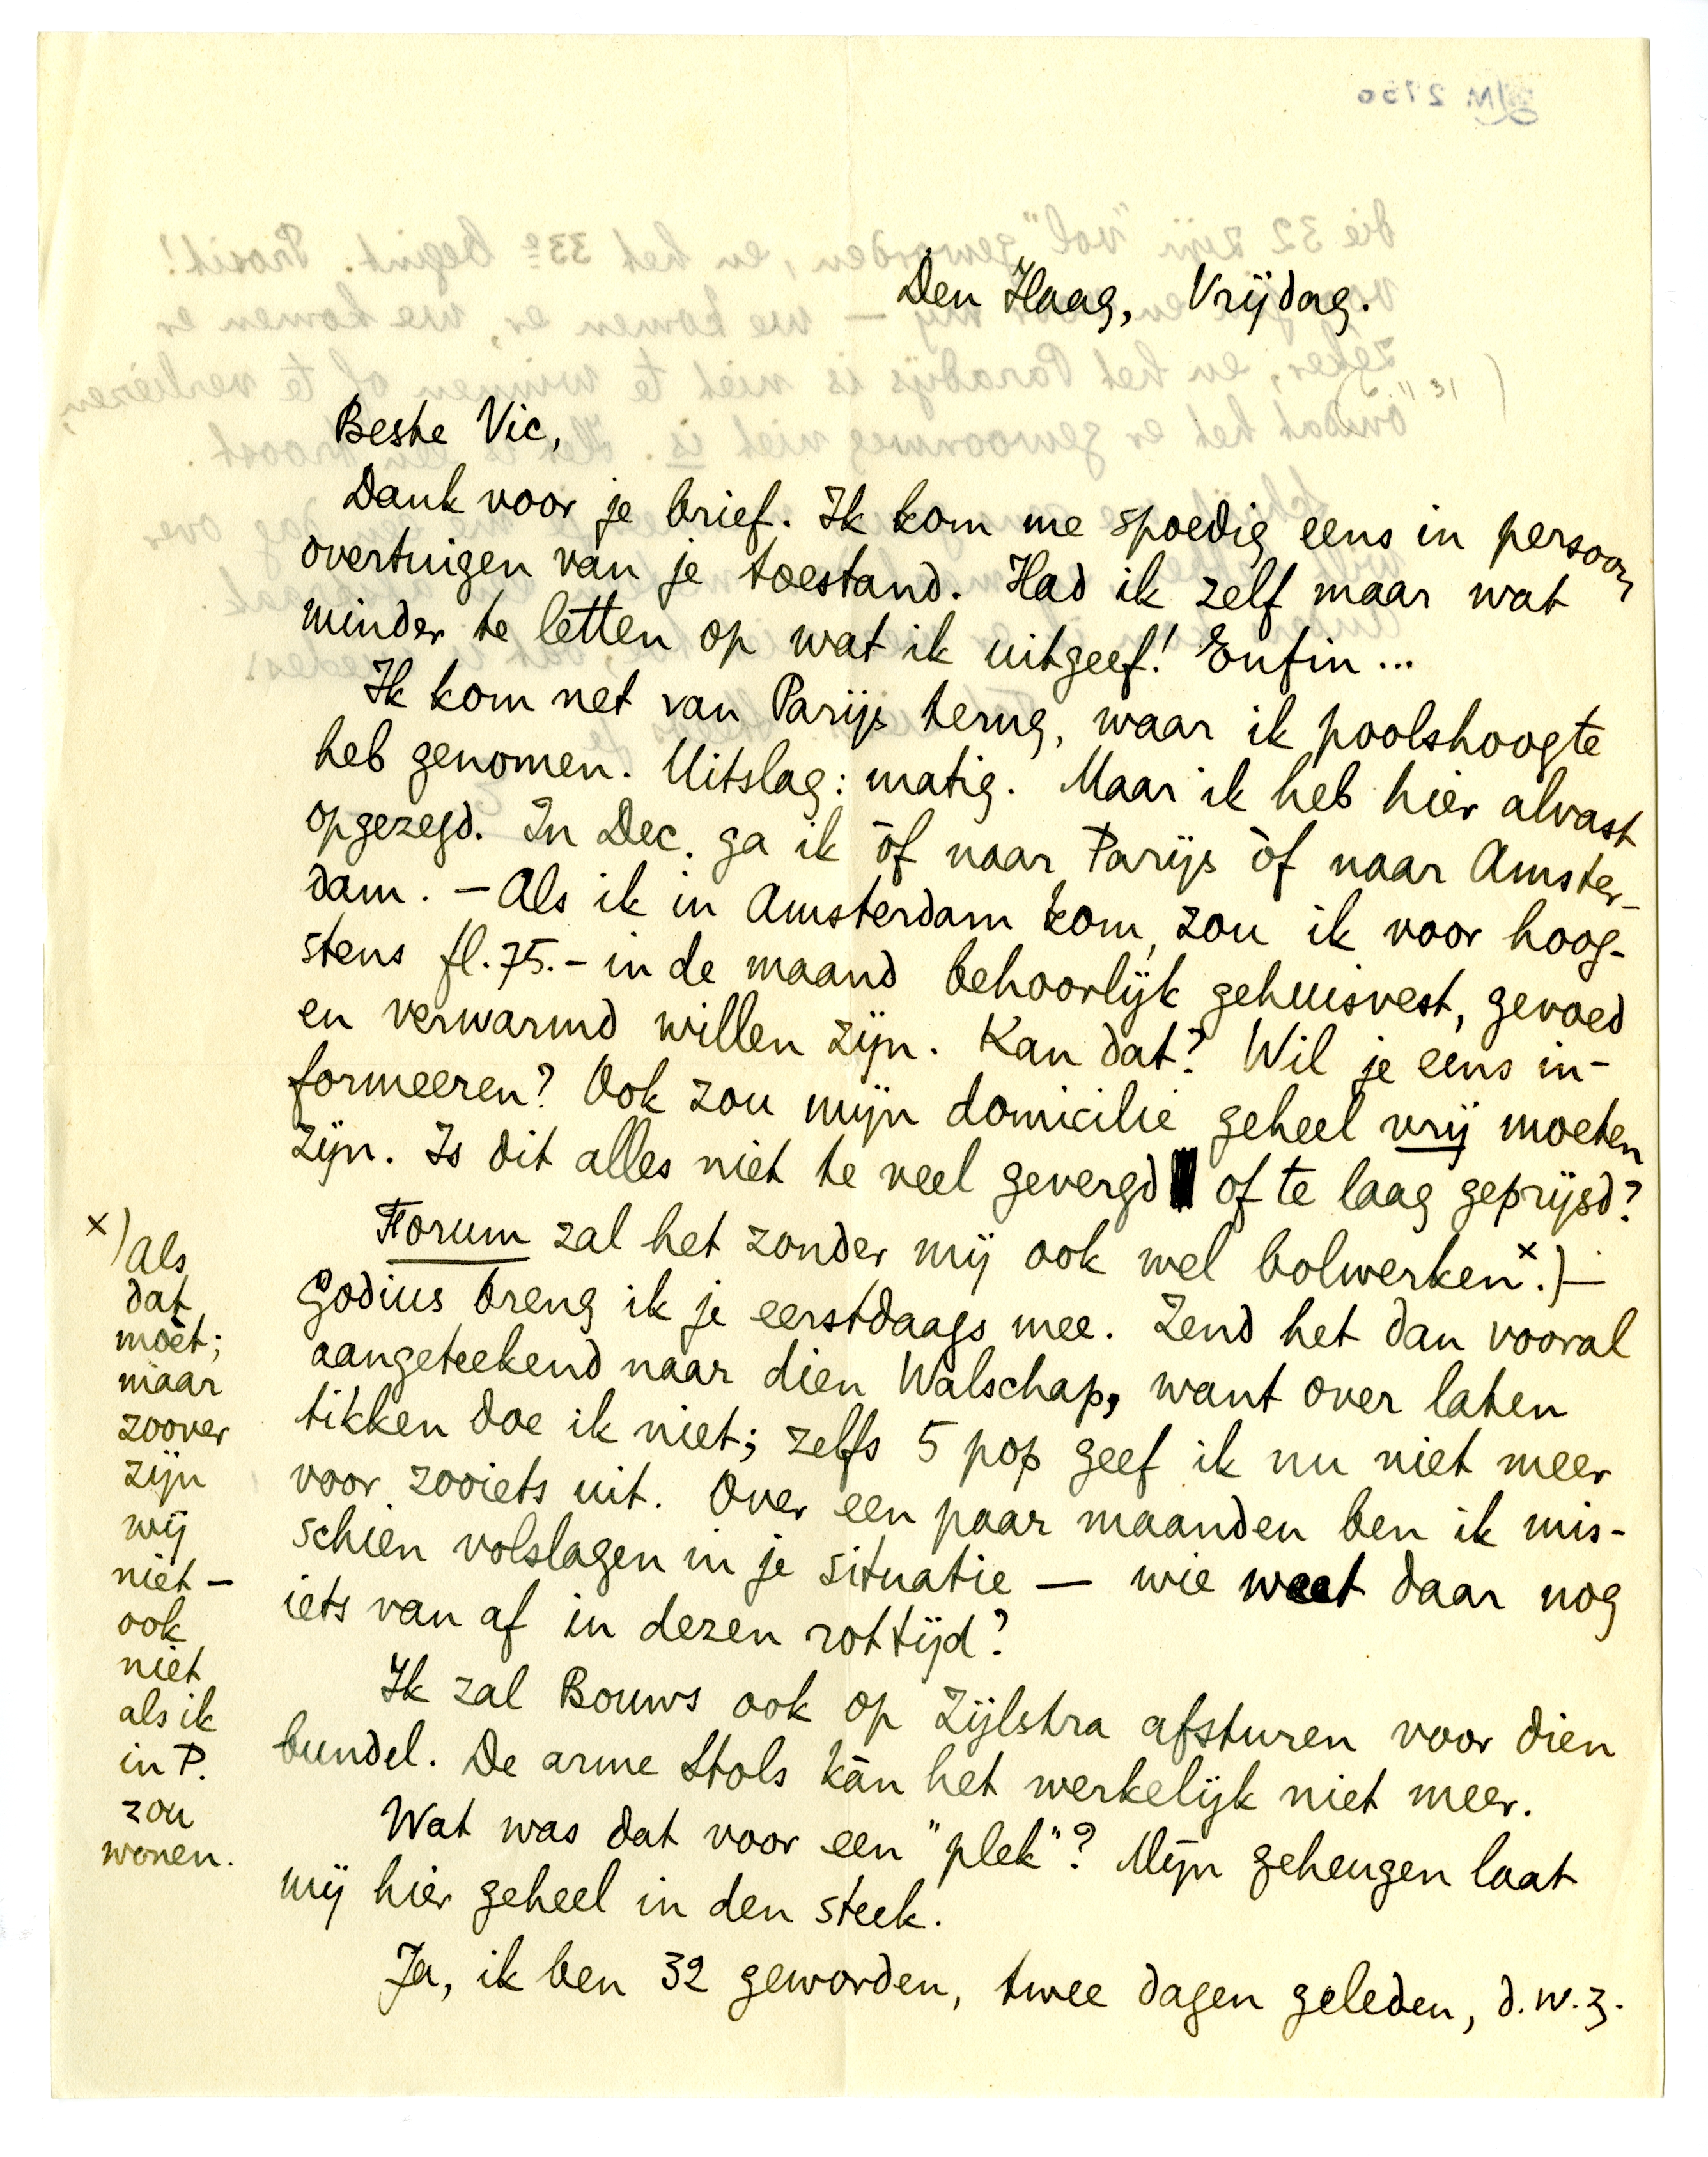 Den Haag, Vrijdag.
Beste Vic,
Dank voor je brief. Ik kom me spoedig eens in persoon
overtuigen van je toestand. Had ik zelf maar wat
minder te letten op wat ik uitgeef! Enfin...
Ik kom net van Parijs terug, waar ik poolshoogte
heb genomen. Uitslag: matig. Maar ik heb hier alvast
opgezegd. In Dec. ga ik òf naar Parijs òf naar Amster-
dam. – Als ik in Amsterdam kom, zou ik voor hoog-
stens fl. 75.– in de maand behoorlijk gehuisvest, gevoed
en verwarmd willen zijn. Kan dat? Wil je eens in-
formeeren? Ook zou mijn domicilie geheel vrij moeten
zijn. Is dit alles niet te veel gevergd of te laag geprijsd?
Forum zal het zonder mij ook wel bolwerken x.) –
Godius breng ik je eerstdaags mee. Zend het dan vooral
aangeteekend naar dien Walschap, want over laten
tikken doe ik niet; zelfs 5 pop geef ik nu niet meer
voor zooiets uit. Over een paar maanden ben ik mis-
schien volslagen in je situatie – wie weet daar nog
iets van af in dezen rottijd?
Ik zal Bouws ook op Zijlstra afsturen voor dien
bundel. De arme Stols kàn het werkelijk niet meer.
Wat was dat voor een "plek"? Mijn geheugen laat
mij hier geheel in den steek.
Ja, ik ben 32 geworden, twee dagen geleden, d.w.z.
x) als
dat
moèt;
maar
zoover
zijn
wij
niet –
ook
niet
als ik
in P.
zou
wonen.